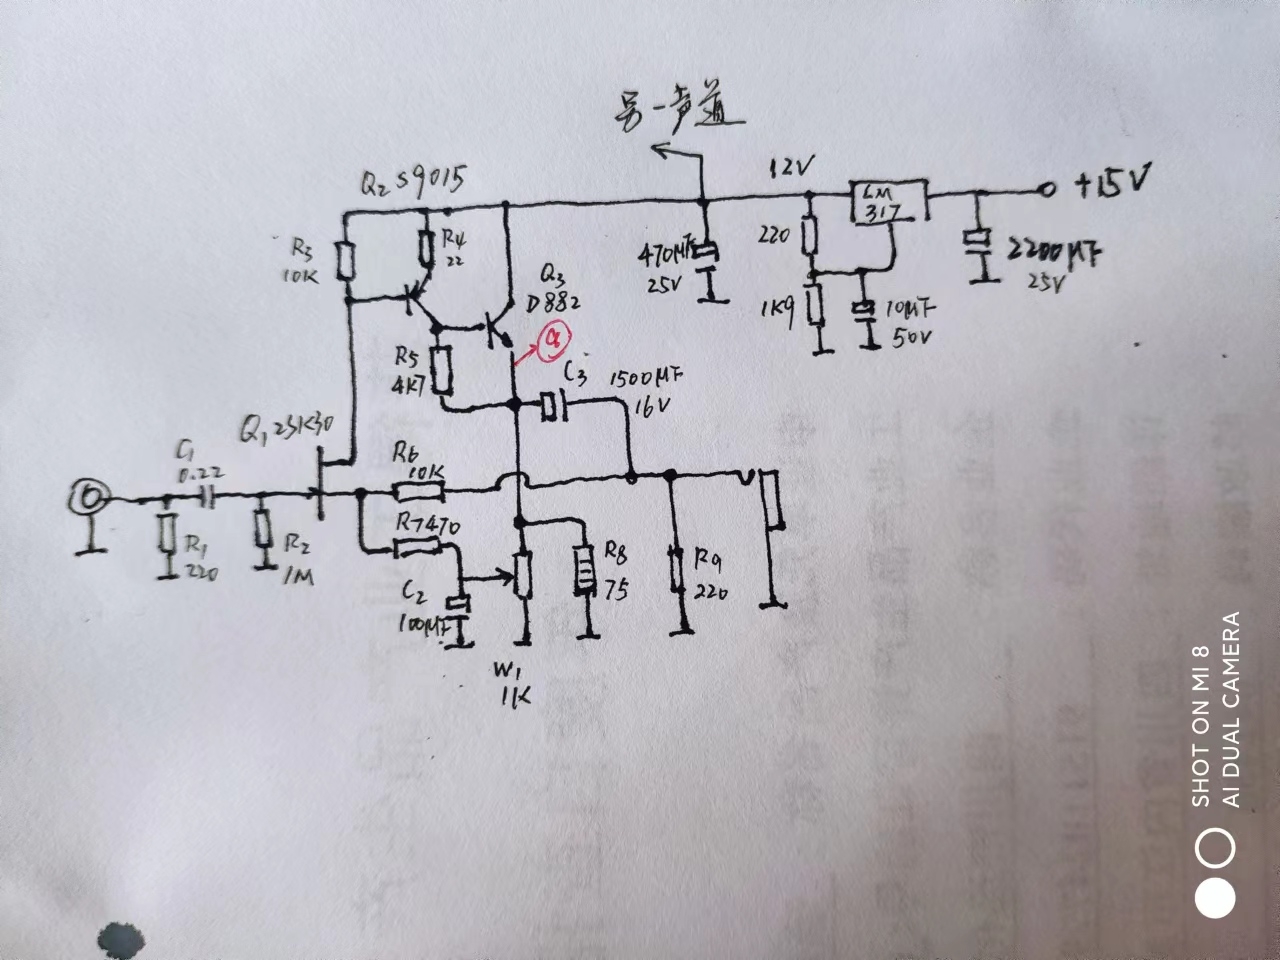 另一声道
Q2 S9015
12V
+15V
LM
317
R3
10K
R4
22
220
470μF
25V
2200μF
25V
Q3
D882
a
1K9
10μF
50V
R5
4K7
C3
1500μF
16V
Q1 2SK30
C1
0.22
R6
10K
R7 470
R1
220
R2
1M
C2
100μF
R8
75
R9
220
W1
1K
SHOT ON MI 8
AI DUAL CAMERA